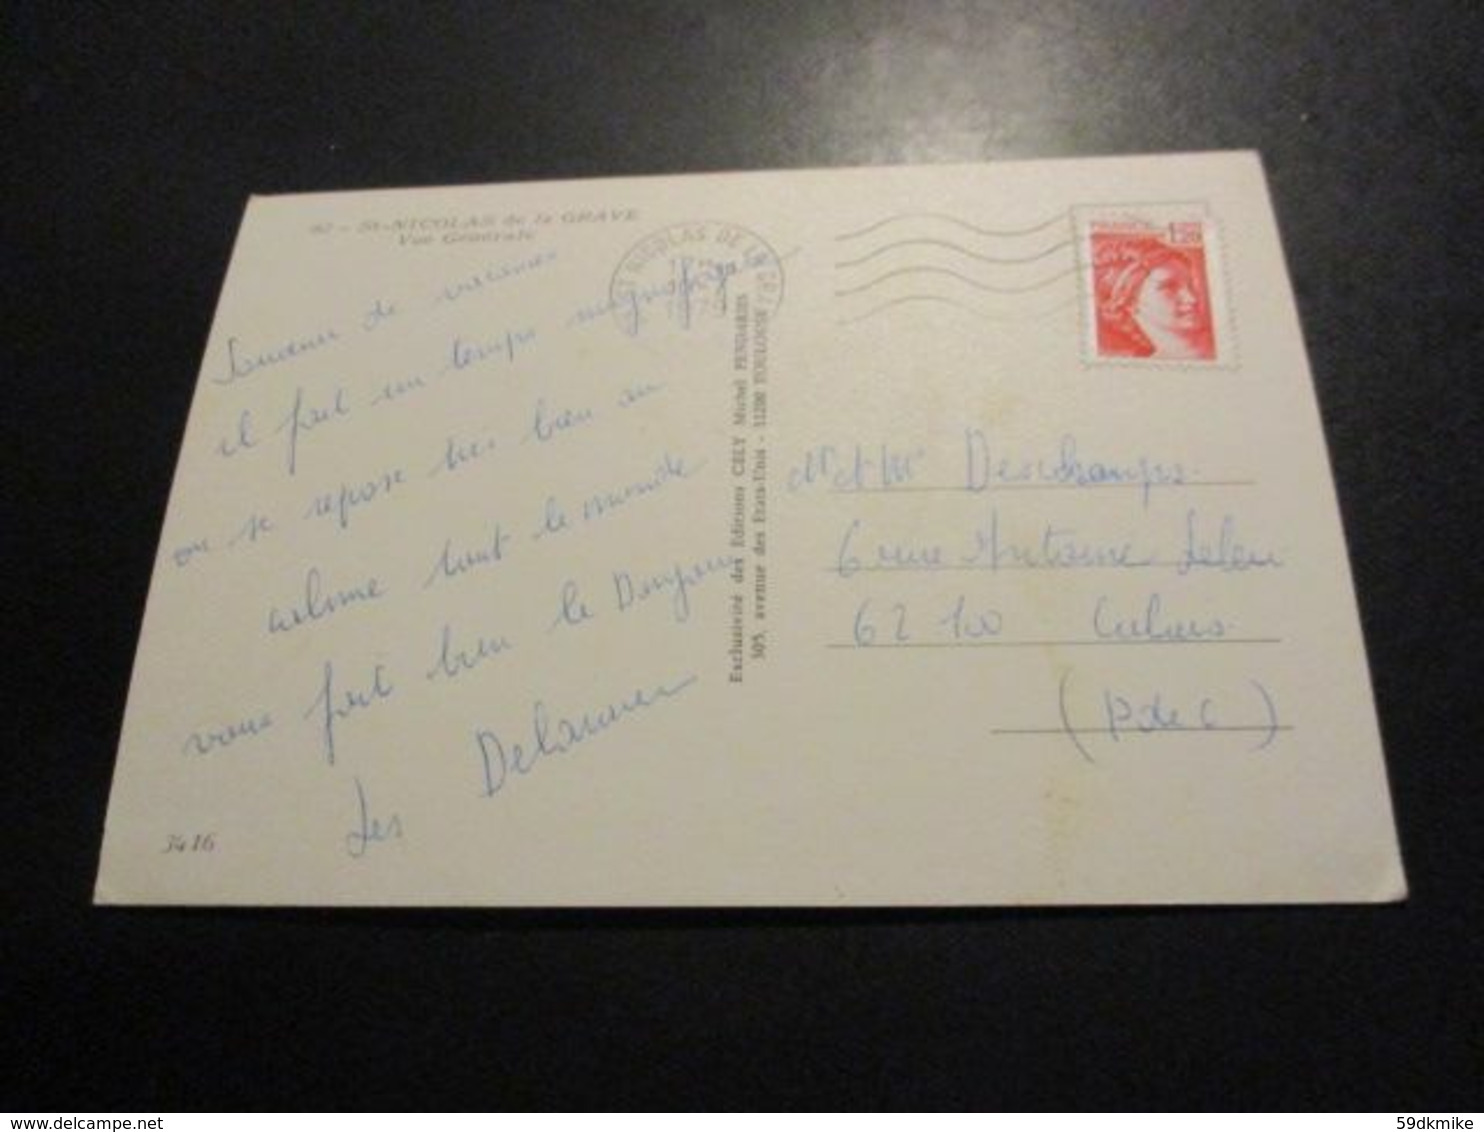 82 - St-NICOLAS de la GRAVE
Vue Générale
Souvenir de vacances
il fait un temps magnifique
on se repose très bien au
calme tout le monde
vous fait bien le Bonjour
Les
3416
ST NICOLAS DE LA GR
Exclusivité des Editions CELY Michel PENDARIES
305, avenue des Etats-Unis - 31200 TOULOUSE
1,20
Mr et Me Deschamps
6 rue Antoine Leleu
62 100 Calais
(P de C)
59dkmike